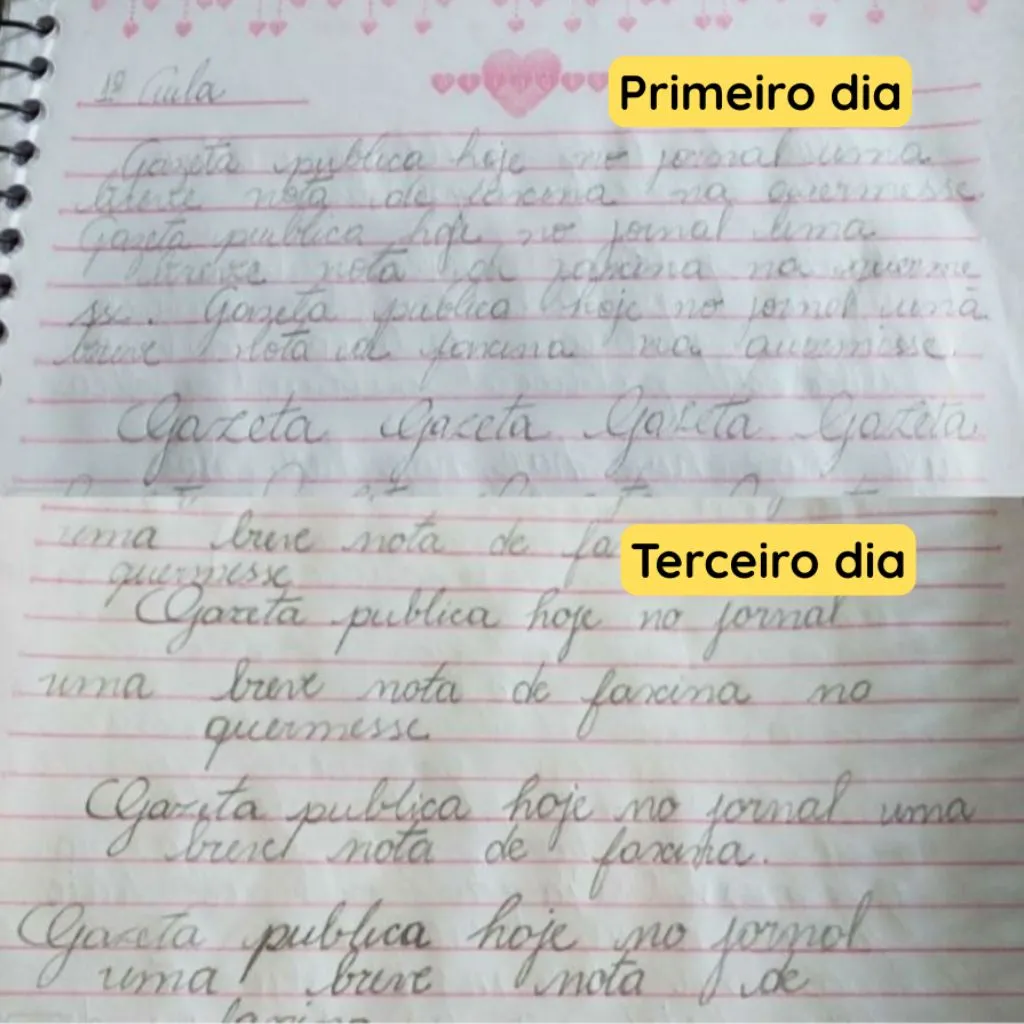 Primeiro dia
1ª Aula
Gazeta publica hoje no jornal uma
breve nota de faxina na quermesse.
Gazeta publica hoje no jornal uma
breve nota da faxina na querme
sse. Gazeta publica hoje no jornal uma
breve nota da faxina na quermisse.
Gazeta Gazeta Gazeta Gazeta
Terceiro dia
uma breve nota de
quermesse
Gazeta publica hoje no jornal
uma breve nota de faxina no
quermesse
Gazeta publica hoje no jornal uma
breve nota de faxina.
Gazeta publica hoje no jornal
uma breve nota de